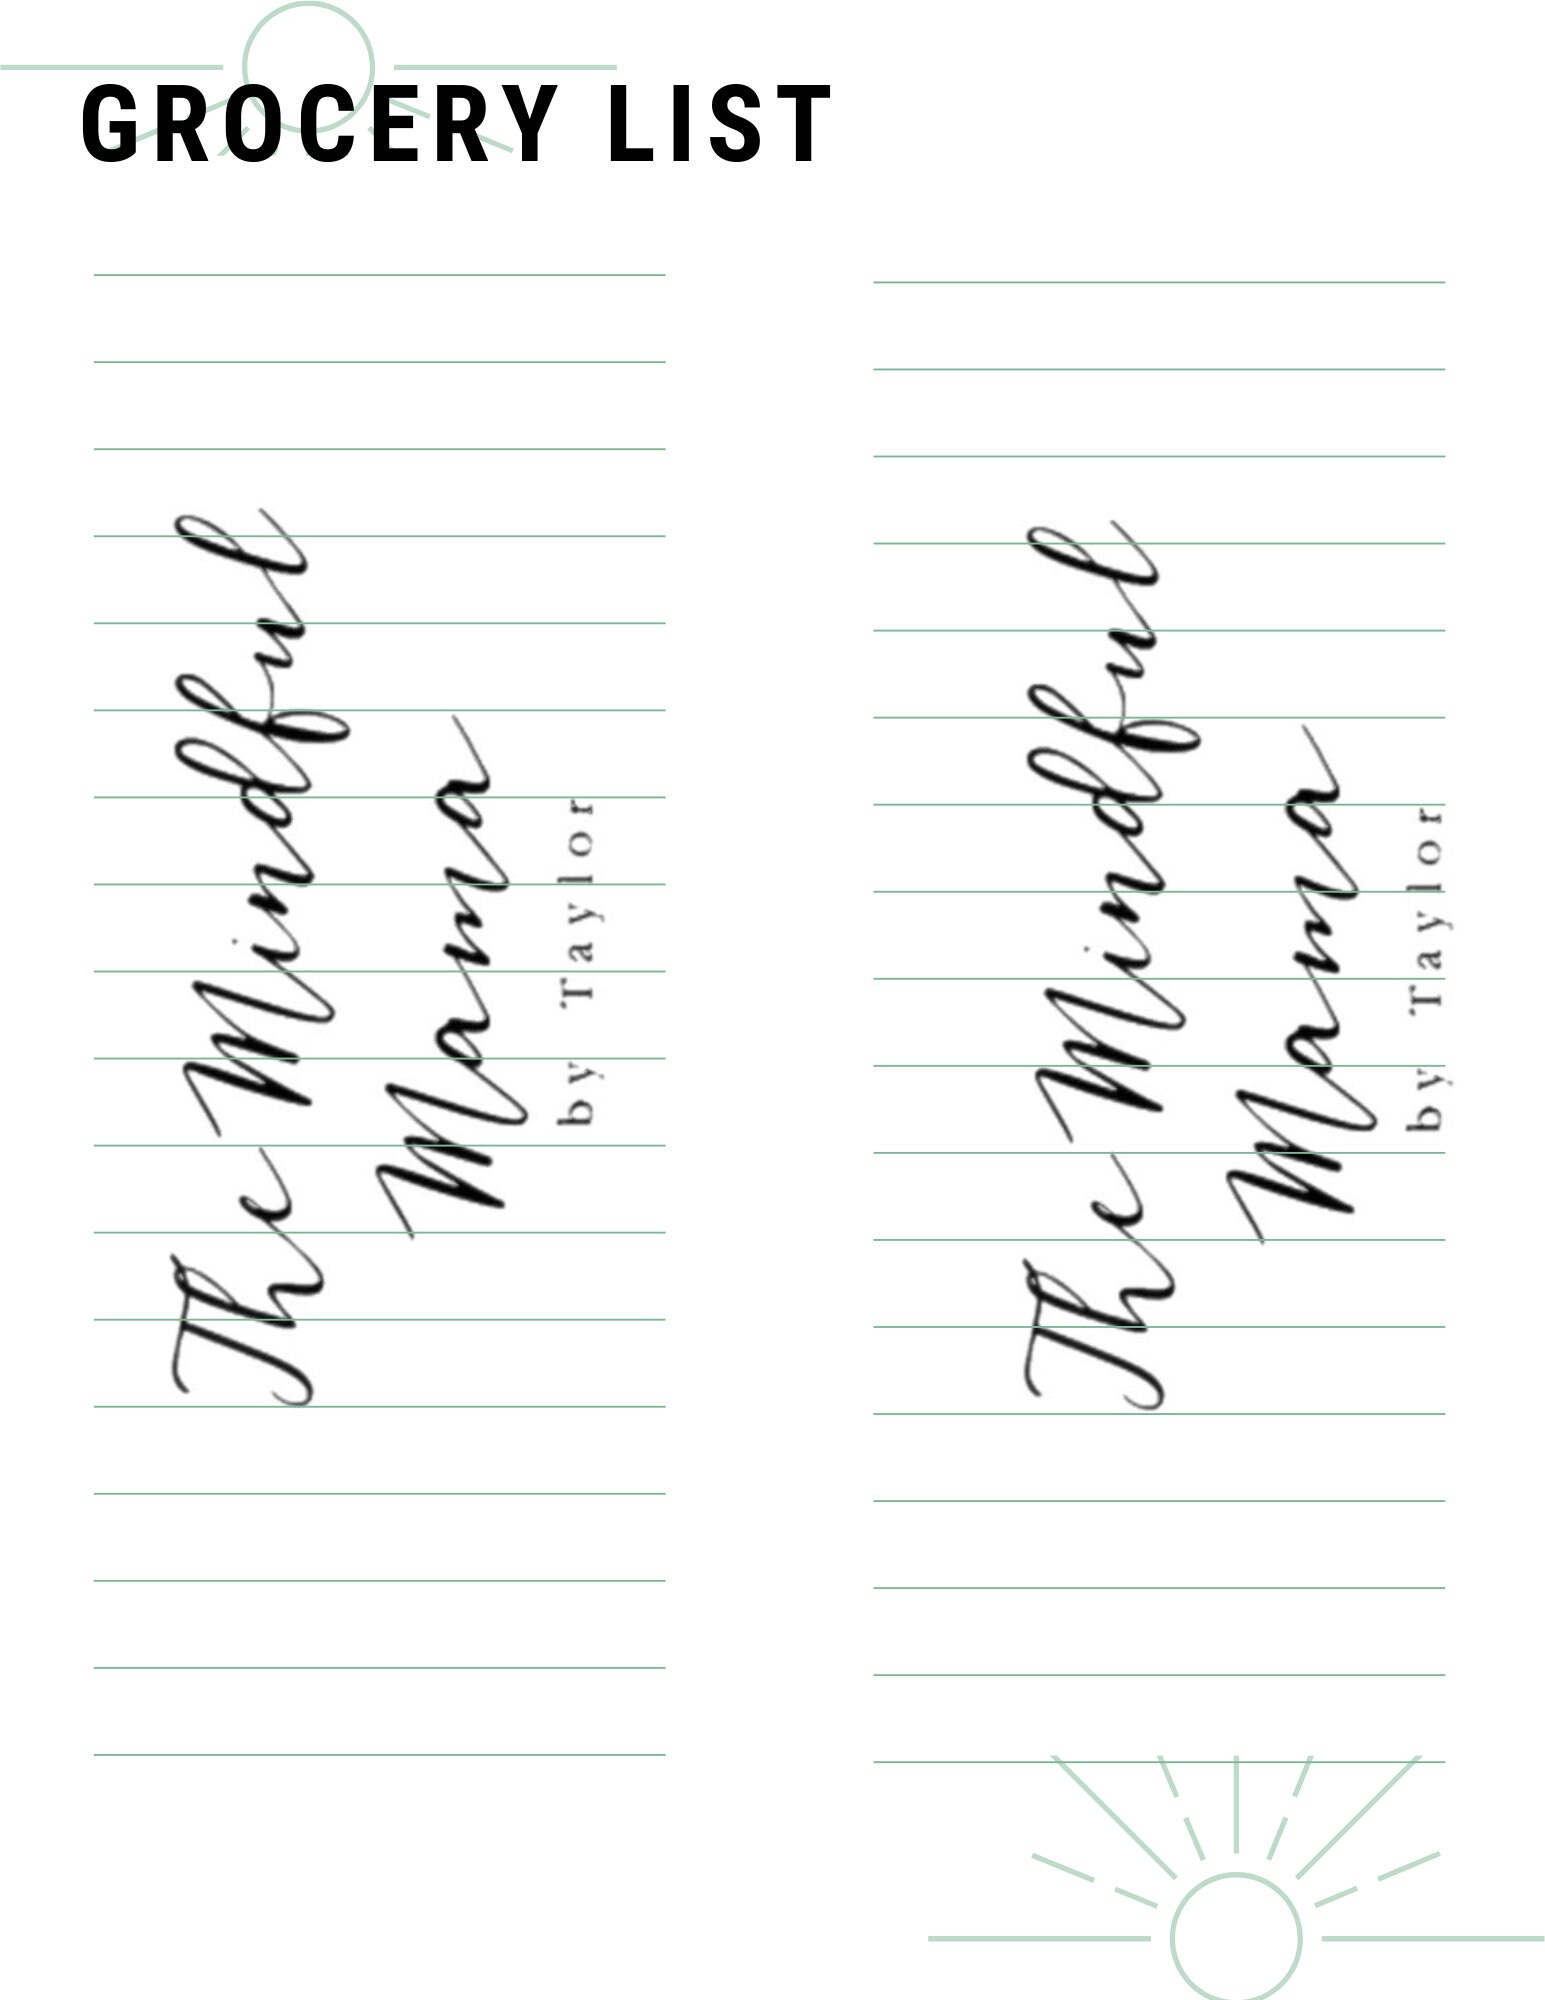 GROCERY LIST
The Mindful
Mama
by Taylor
The Mindful
Mama
by Taylor